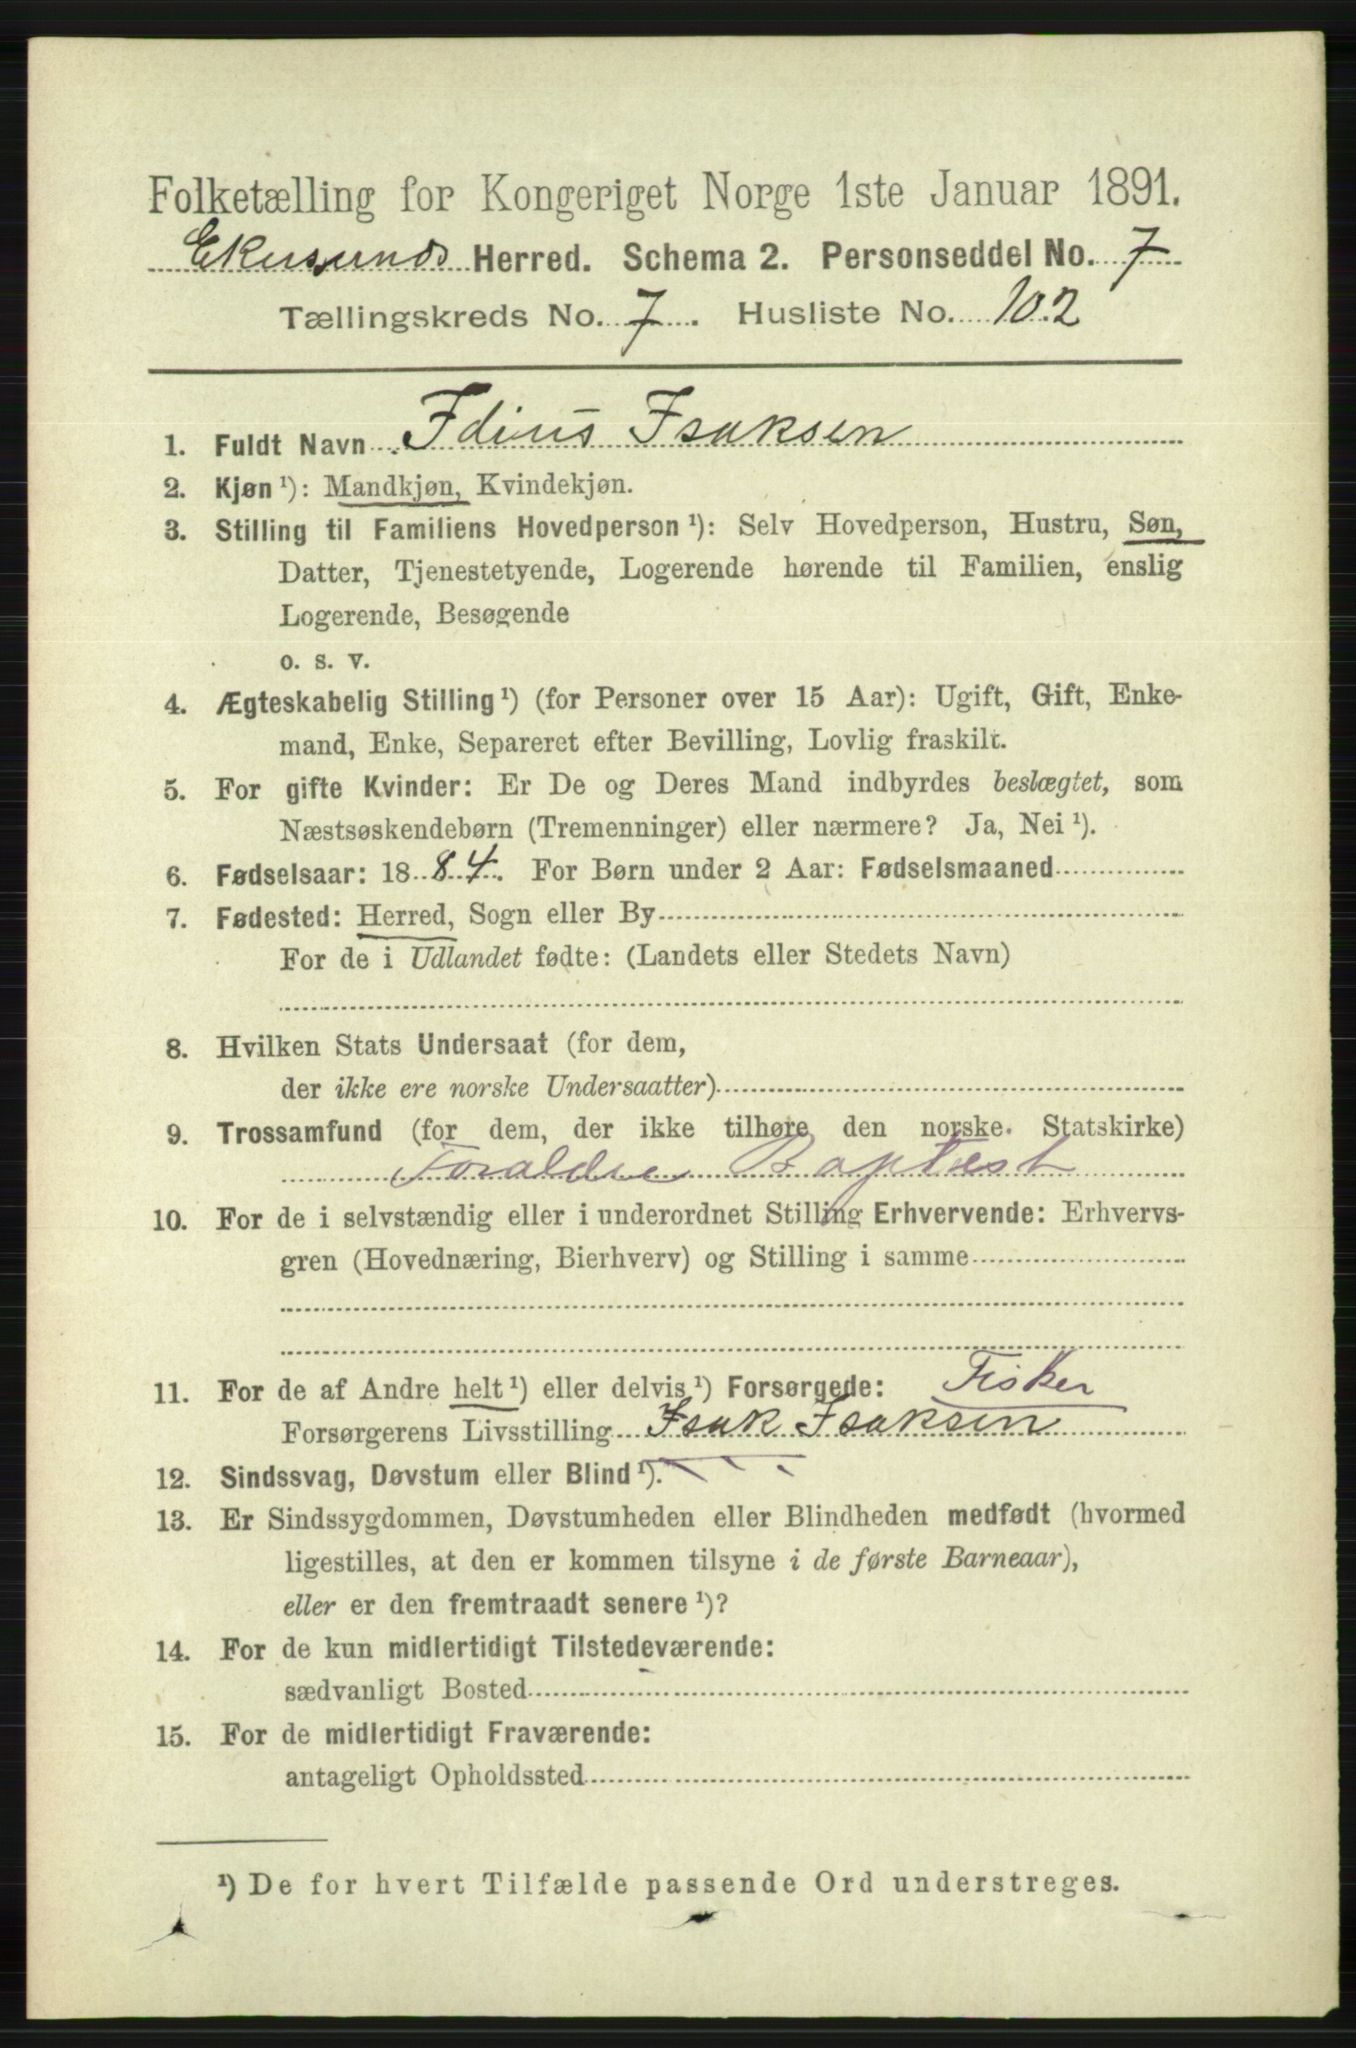 Folketælling for Kongeriget Norge 1ste Januar 1891.
Ekersunds Herred. Schema 2. Personseddel No. 7
Tællingskreds No. 7. Husliste No. 102
1. Fuldt Navn Idius Isaksen
2. Kjøn ¹): Mandkjøn, Kvindekjøn.
3. Stilling til Familiens Hovedperson ¹): Selv Hovedperson, Hustru, Søn,
Datter, Tjenestetyende, Logerende hørende til Familien, enslig
Logerende, Besøgende
o. s. v.
4. Ægteskabelig Stilling ¹) (for Personer over 15 Aar): Ugift, Gift, Enke-
mand, Enke, Separeret efter Bevilling, Lovlig fraskilt.
5. For gifte Kvinder: Er De og Deres Mand indbyrdes beslægtet, som
Næstsøskendebørn (Tremenninger) eller nærmere? Ja, Nei ¹).
6. Fødselsaar: 1884. For Børn under 2 Aar: Fødselsmaaned
7. Fødested: Herred, Sogn eller By
For de i Udlandet fødte: (Landets eller Stedets Navn)
8. Hvilken Stats Undersaat (for dem,
der ikke ere norske Undersaatter)
9. Trossamfund (for dem, der ikke tilhøre den norske Statskirke)
Foraldre Baptist
10. For de i selvstændig eller i underordnet Stilling Erhvervende: Erhvervs-
gren (Hovednæring, Bierhverv) og Stilling i samme
11. For de af Andre helt ¹) eller delvis ¹) Forsørgede: Fisker
Forsørgerens Livsstilling Isak Isaksen
12. Sindssvag, Døvstum eller Blind ¹).
13. Er Sindssygdommen, Døvstumheden eller Blindheden medfødt (hvormed
ligestilles, at den er kommen tilsyne i de første Barneaar),
eller er den fremtraadt senere ¹)?
14. For de kun midlertidigt Tilstedeværende:
sædvanligt Bosted
15. For de midlertidigt Fraværende:
antageligt Opholdssted
¹) De for hvert Tilfælde passende Ord understreges.